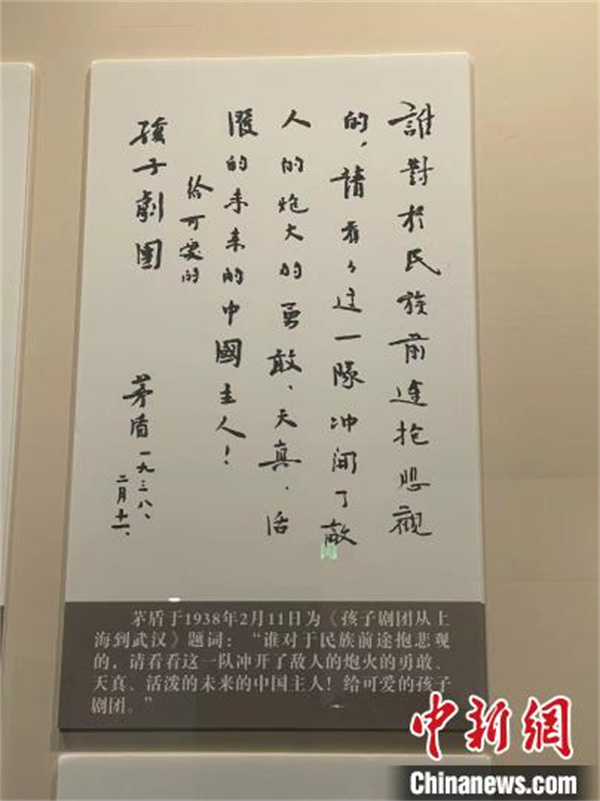 誰對於民族前途抱悲观
的，請看々这一隊冲開了敵
人的炮火的勇敢、天真、活
潑的未来的中國主人！
给可爱的
孩子劇團
茅盾一九三八、
二月十一、
茅盾于1938年2月11日为《孩子剧团从上
海到武汉》题词：“谁对于民族前途抱悲观
的，请看看这一队冲开了敌人的炮火的勇敢、
天真、活泼的未来的中国主人！给可爱的孩子
剧团。”
中新网
Chinanews.com